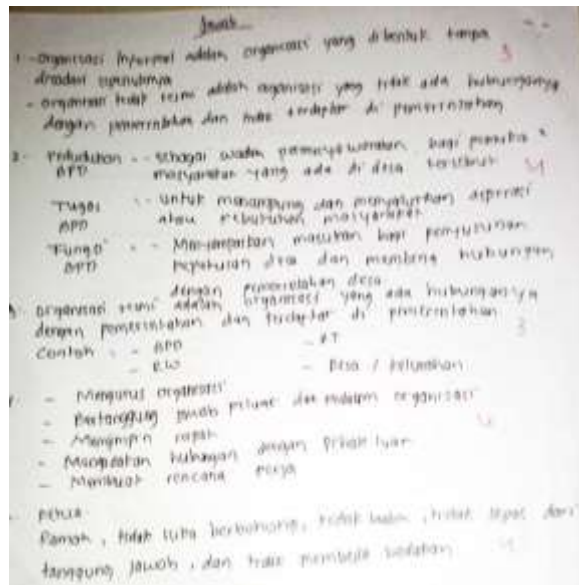 Jawab
1. - organisasi informal adalah organisasi yang dibentuk tanpa
disadari sepenuhnya
- organisasi tidak resmi adalah organisasi yang tidak ada hubungannya
dengan pemerintahan dan tidak terdaftar di pemerintahan
3
2. Kedudukan - - sebagai wadah permusyawaratan bagi pemuka
BPD masyarakat yang ada di desa tersebut
4
Tugas - untuk menampung dan menyalurkan aspirasi
BPD atau kebutuhan masyarakat
Fungsi - - Menyampaikan masukan bagi penyusunan
BPD keputusan desa dan membina hubungan
dengan pemerintahan desa
organisasi resmi adalah organisasi yang ada hubungannya
dengan pemerintahan dan terdaftar di pemerintahan
3
Contoh : - BPD - RT
- RW - Desa / kelurahan
- Mengurus organisasi
- Bertanggung jawab dalam organisasi
- Memimpin rapat
- Mengadakan hubungan dengan pihak luar
- Membuat rencana kerja
4
Ketua
Ramah, tidak suka berbohong, tidak , tidak lepas dari
tanggung jawab, dan tidak
4